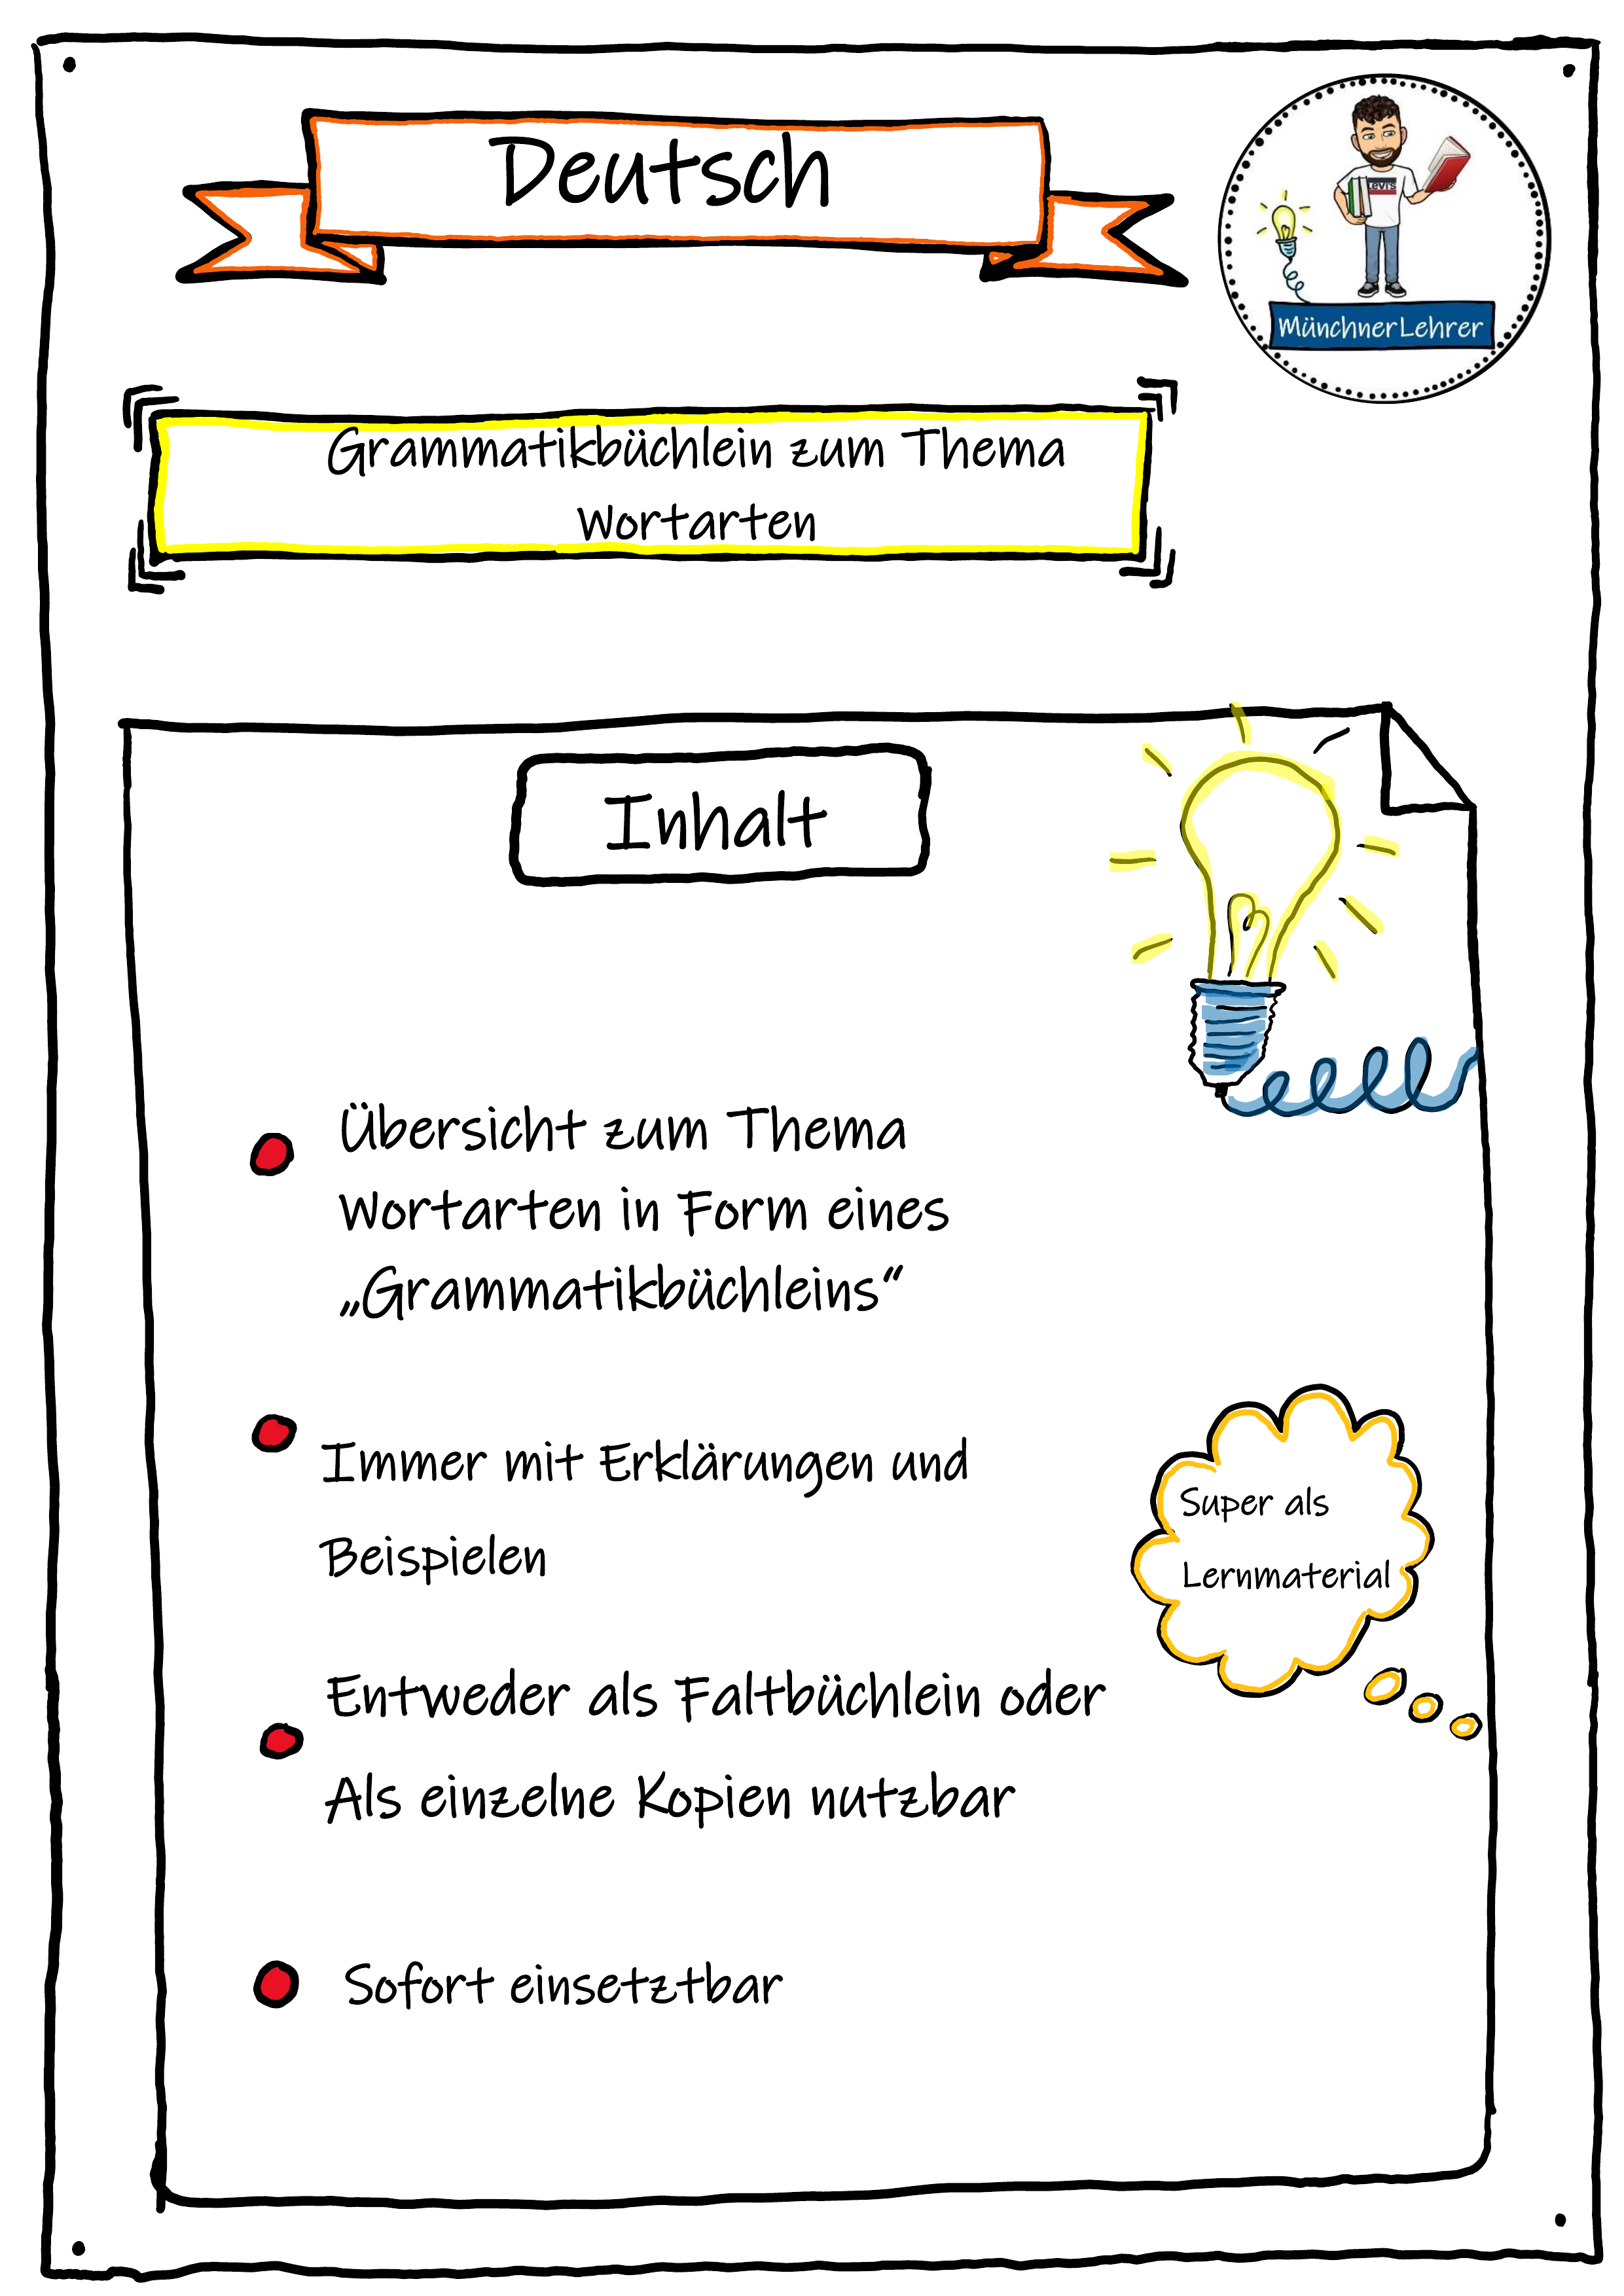 Deutsch
LEVI'S
MünchnerLehrer
Grammatikbüchlein zum Thema
Wortarten
Inhalt
Übersicht zum Thema
Wortarten in Form eines
„Grammatikbüchleins“
Immer mit Erklärungen und
Beispielen
Super als
Lernmaterial
Entweder als Faltbüchlein oder
Als einzelne Kopien nutzbar
Sofort einsetztbar